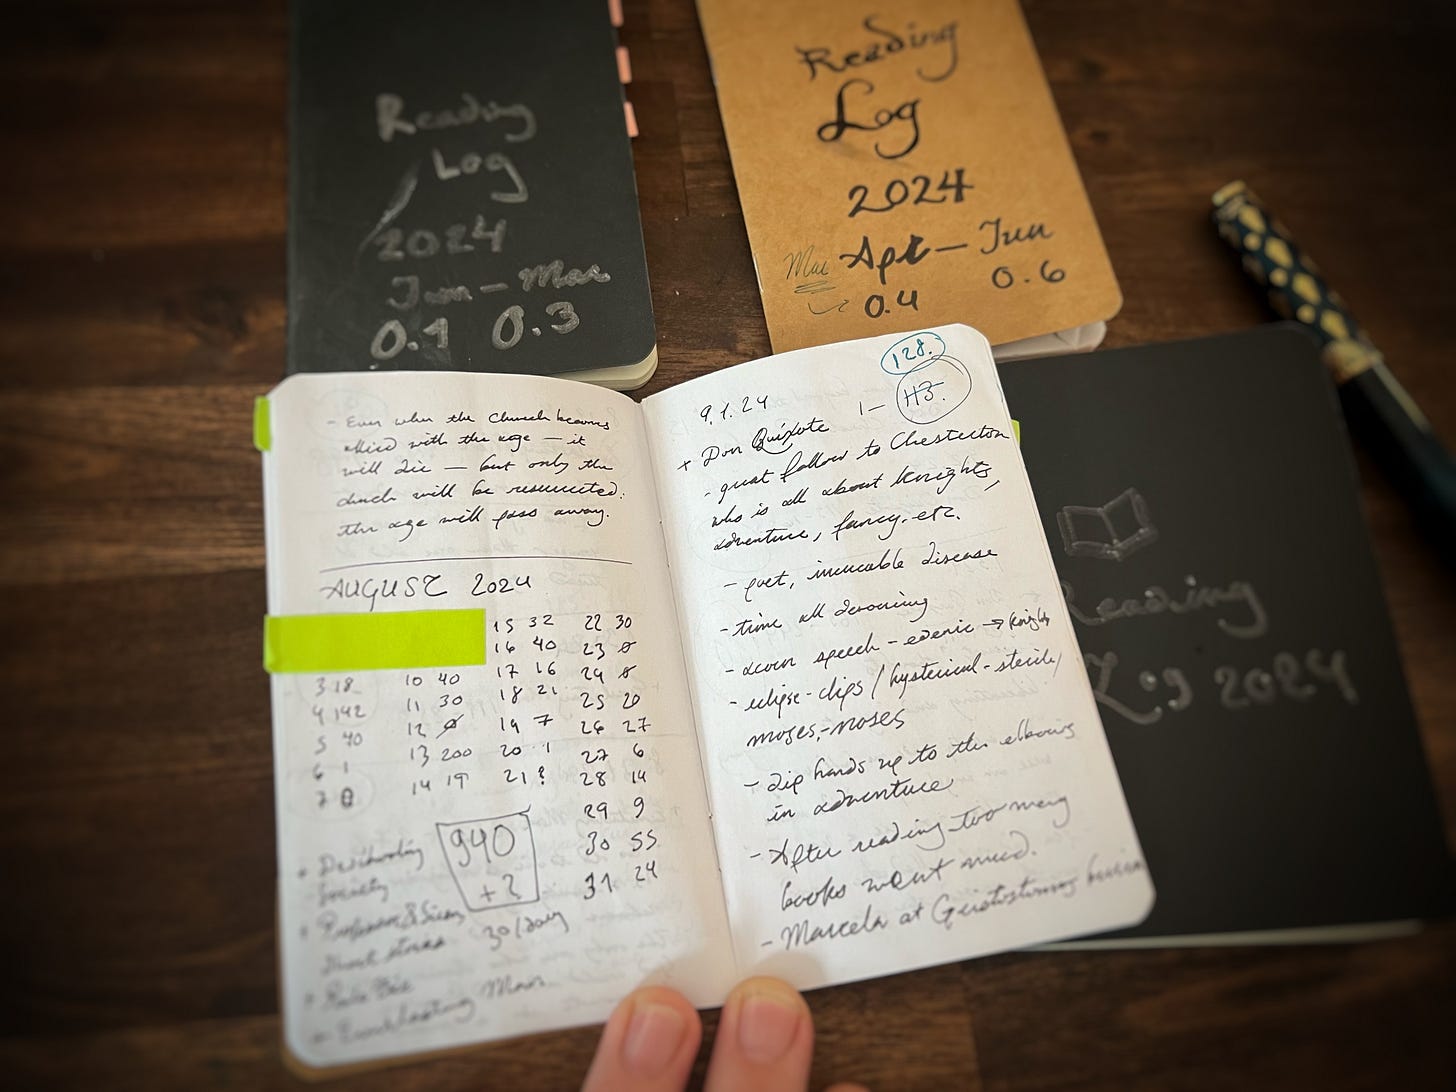 Reading
Log
2024
Jan - Mar
0.1 0.3
Reading
Log
2024
Mar Apr - Jun
0.4 0.6
- Even when the church becomes
allied with the age - it
will die - but only the
church will be resurrected.
the age will pass away.
AUGUST 2024
15 32 22 30
16 40 23 0
3 18 10 40 17 16 24 0
4 142 11 30 18 21 25 20
5 70 12 0 19 7 26 27
6 1 13 200 20 1 27 6
7 0 14 19 21 ? 28 14
29 9
30 55
31 24
940
+ ?
30/day
+ Deschooling
Society
+ Professor &
Short stories
+
+ Everlasting Man
128.
9.1.24 1- 113.
+ Don Quixote
- great follow to Chesterton
who is all about knights,
adventure, fancy, etc.
- poet, incurable disease
- time all devouring
- scorn speech - edenic → knights
- eclipse - clips / hysterical - sterile,
moses - noses
- dip hands up to the elbows
in adventure
- After reading too many
books went mad.
- Marcela at
Reading
Log 2024